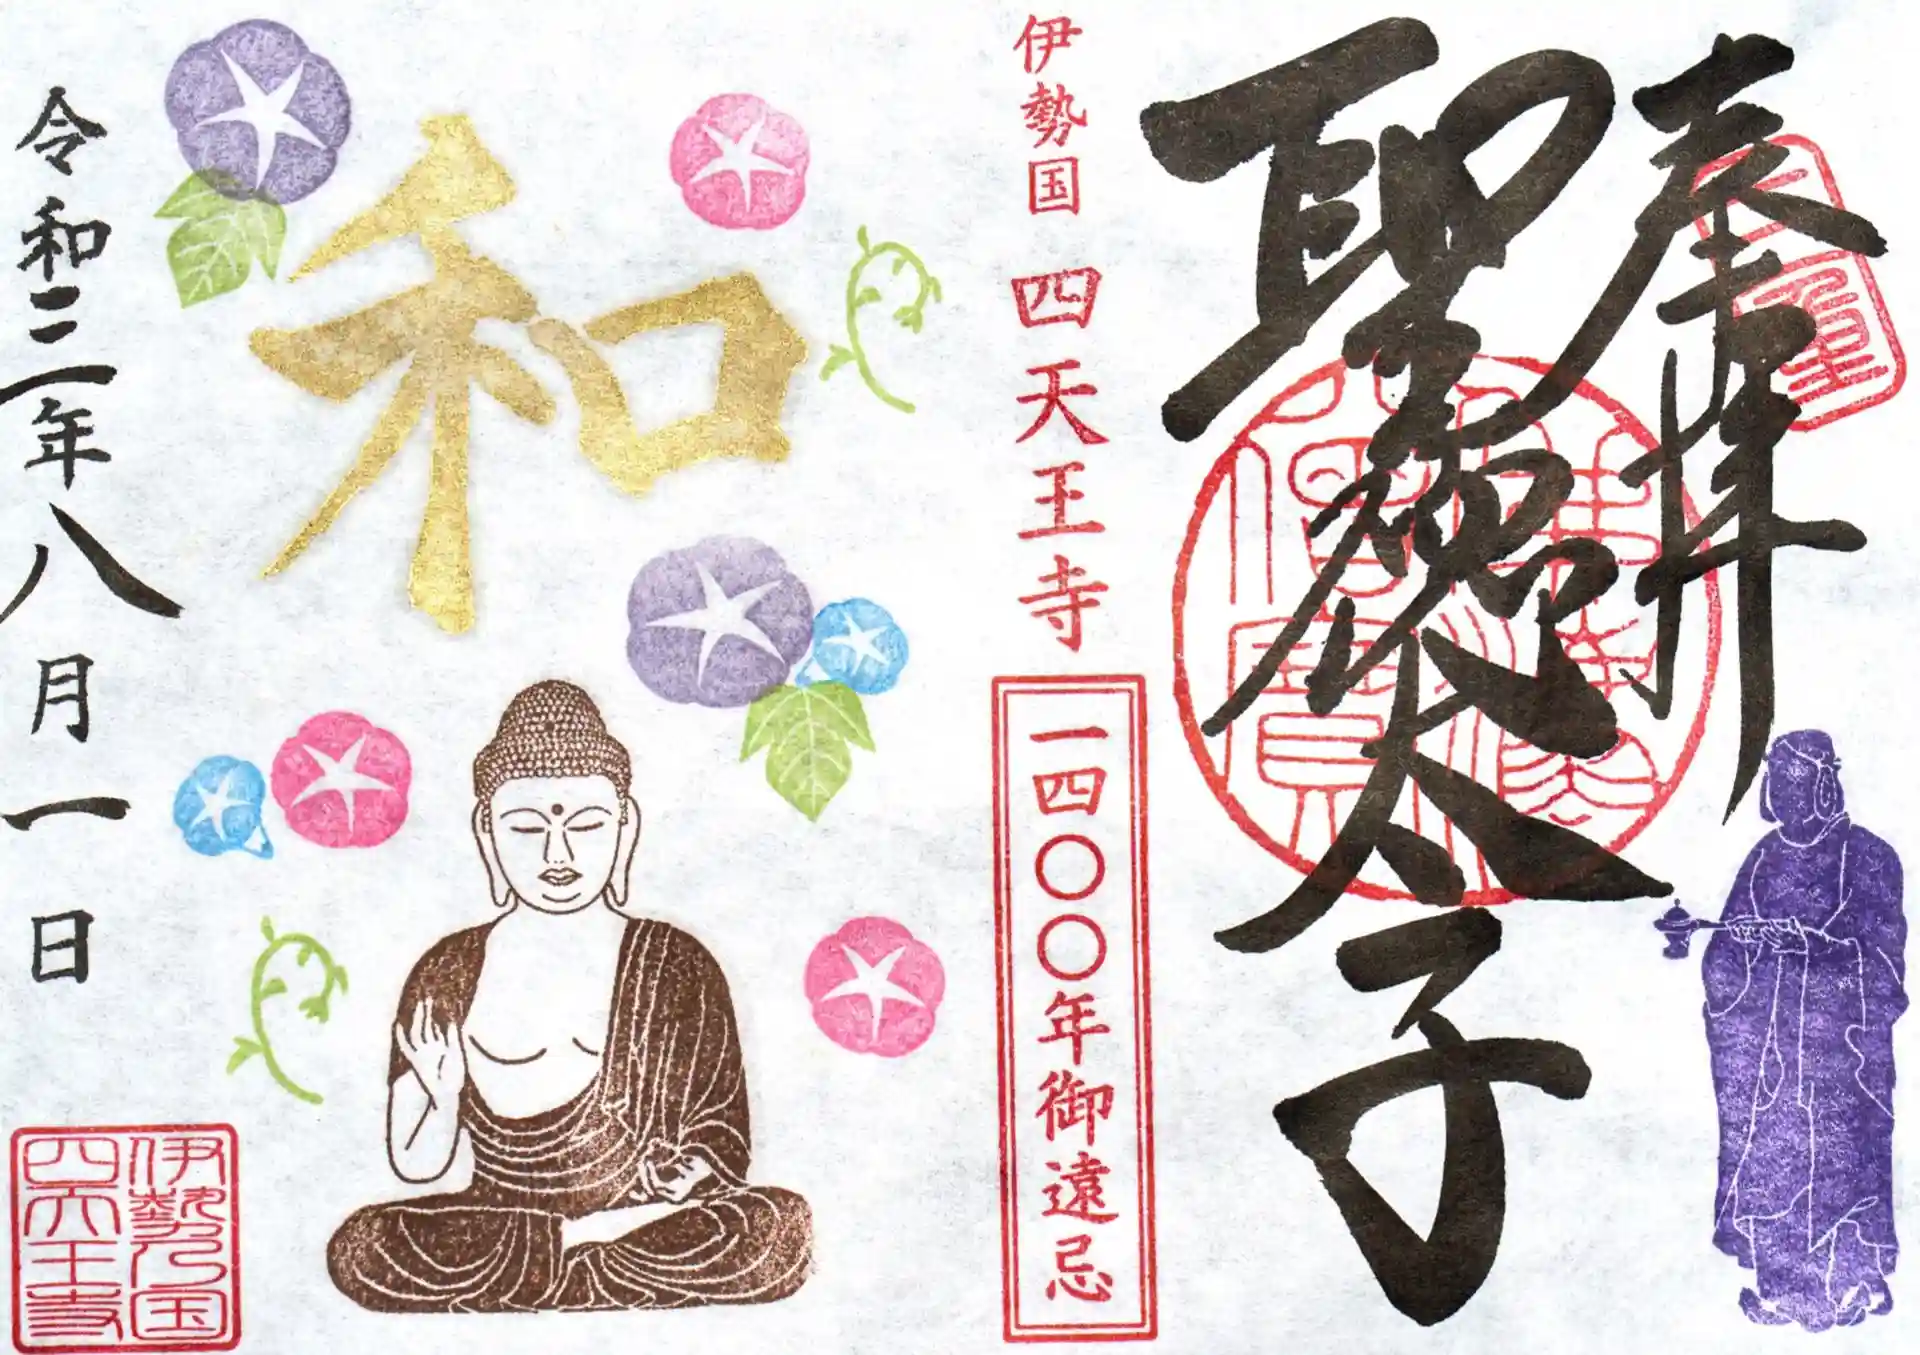 奉拝
聖徳太子
伊勢国 四天王寺
一四〇〇年御遠忌
和
令和三年八月一日
伊勢国
四天王寺